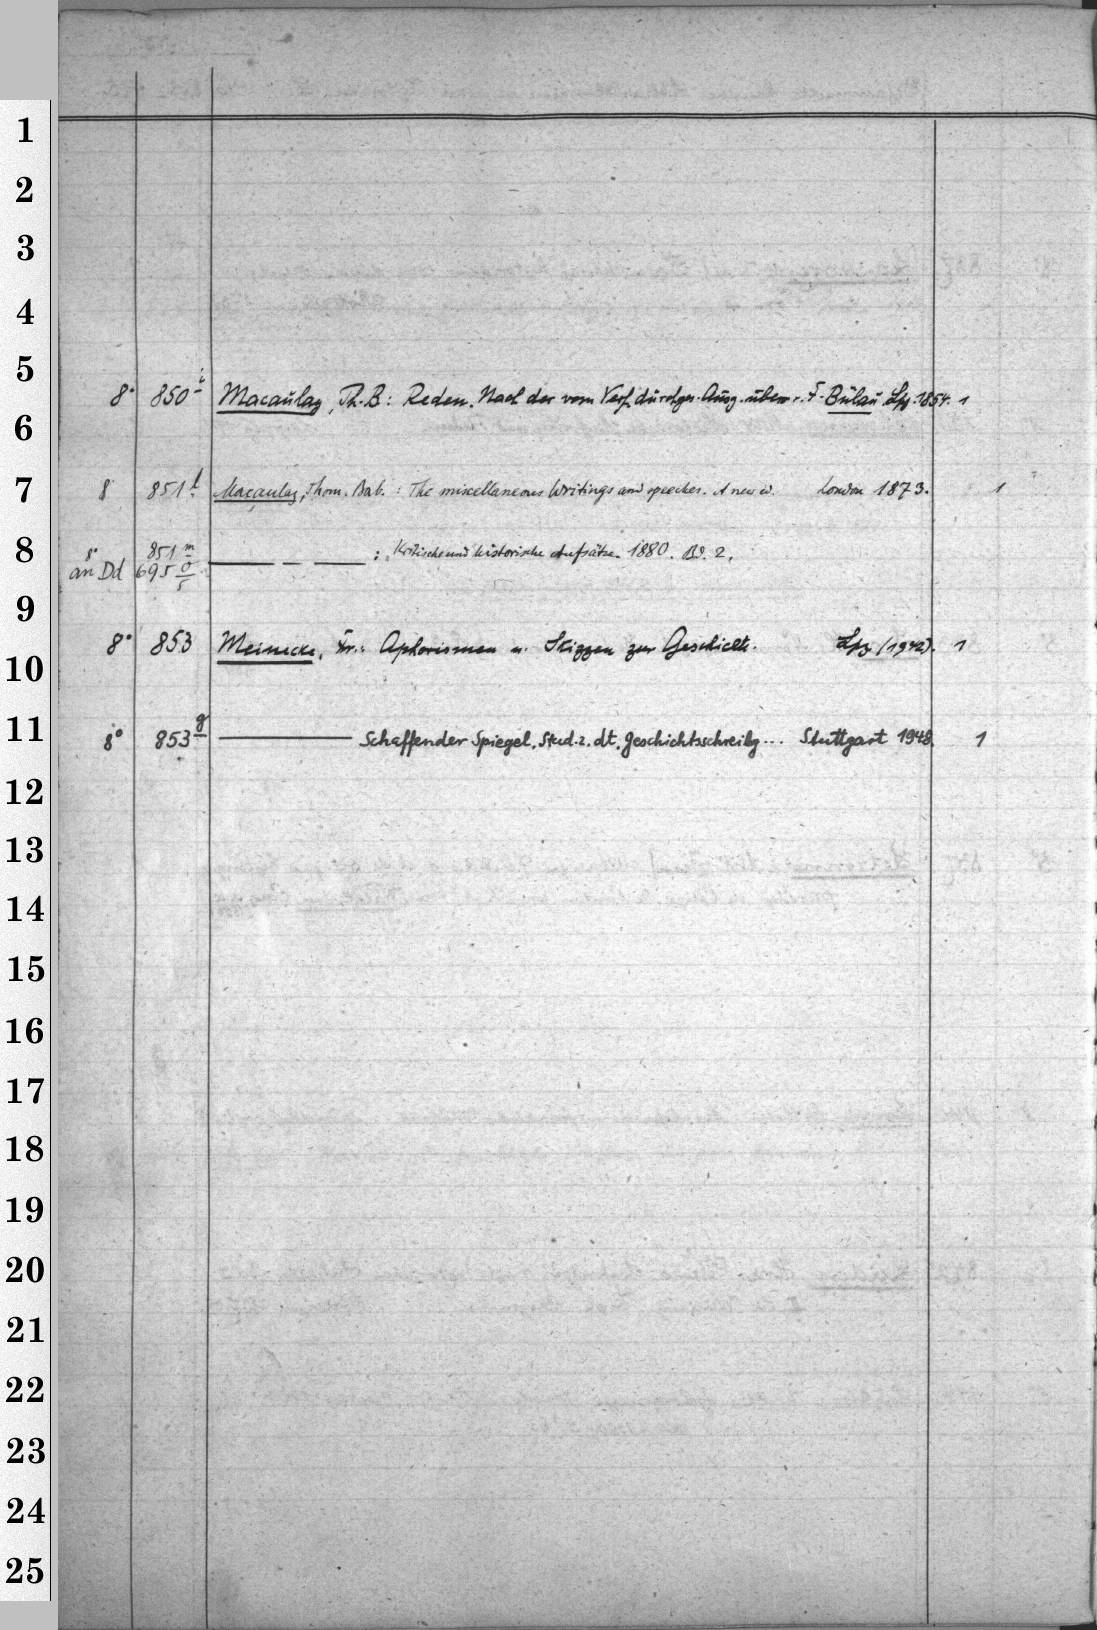 1
2
3
4
5
8° 850 i Macaulay, Th. B: Reden. Nach der vom Verf. durchges. Ausg. übers. v. F. Bülau Lpz. 1854. 1
6
7 8 851 l Macaulay, Thom. Bab. : The miscellaneous Writings and speeches. A new ed. London 1873. 1
8 8° 851 m — — — : Kritische und historische Aufsätze. 1880. Bd. 2.
an Dd 695 0/5
9
8° 853 Meinecke, Fr.: Aphorismen u. Skizzen zur Geschichte. Lpz (1942). 1
10
11 8° 853 g ——— Schaffender Spiegel. Stud. z. dt. Geschichtsschreibg... Stuttgart 1948. 1
12
13
14
15
16
17
18
19
20
21
22
23
24
25